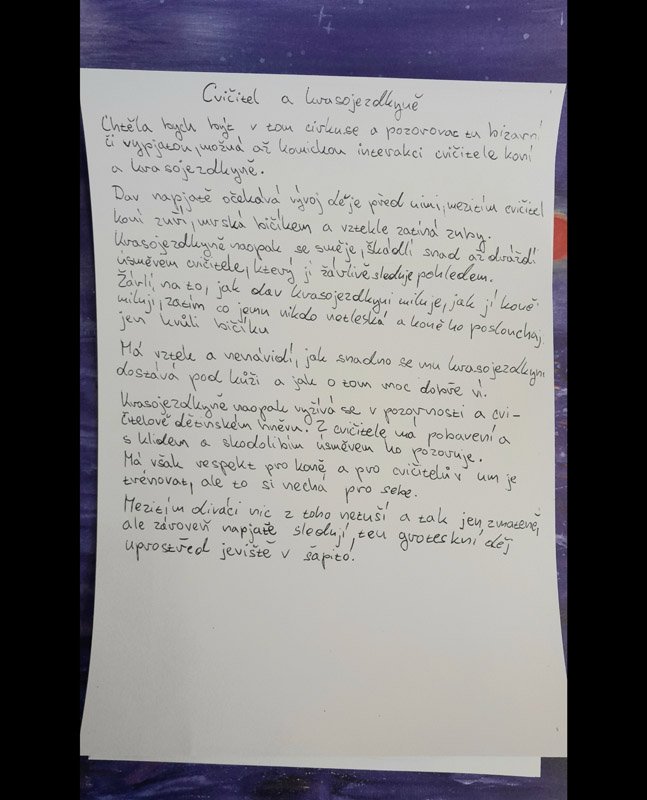 Cvičitel a krasojezdkyně
Chtěla bych být v tom cirkuse a pozorovat tu bizarní
či vypjatou, možná až komickou interakci cvičitele koní
a krasojezdkyně.
Dav napjatě očekává vývoj děje před nimi, mezitím cvičitel
koní zuří, mrská bičíkem a vztekle zatíná zuby.
Krasojezdkyně naopak se směje, škádlí snad až dráždí
úsměvem cvičitele, který ji žárlivě sleduje pohledem.
Žárlí na to, jak dav krasojezdkyni miluje, jak jí koně
milují, zatím co jemu nikdo netleská a koně ho poslouchaj
jen kvůli bičíku
Má vztek a nenávidí, jak snadno se mu krasojezdkyni
dostává pod kůži a jak o tom moc dobře ví.
Krasojezdkyně naopak vyžívá se v pozornosti a cvi-
čitelově dětinském hněvu. Z cvičitele má pobavení a
s klidem a škodolibím úsměvem ho pozoruje.
Má však respekt pro koně a pro cvičitelův um je
trénovat, ale to si nechá pro sebe.
Mezitím diváci nic z toho netuší a tak jen zmateně,
ale zároveň napjatě sledují, ten groteskní děj
uprostřed jeviště v šapitó.